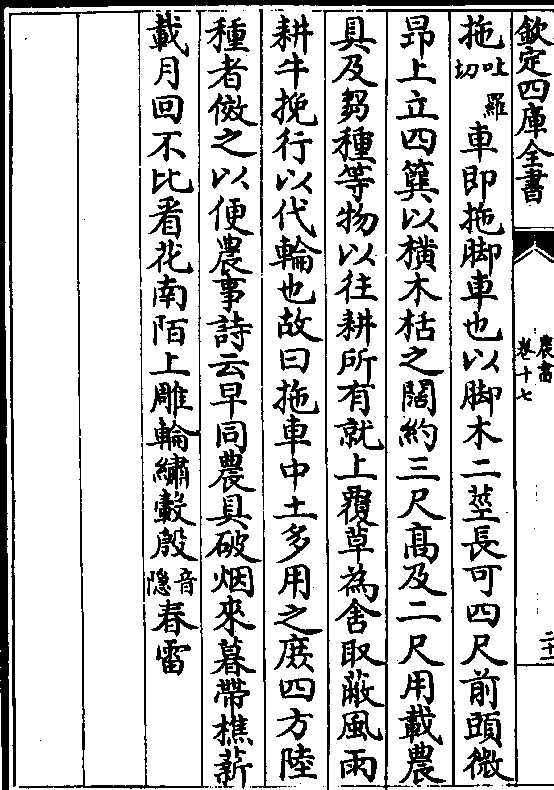 欽定四庫全書
農書
卷十七
二十二
拖吐羅切車即拖脚車也以脚木二莖長可四尺前頭微
昂上立四簨以橫木栝之闊約三尺高及二尺用載農
具及芻種等物以往耕所有就上覆草為舍取蔽風雨
耕牛挽行以代輪也故曰拖車中土多用之庶四方陸
種者傚之以便農事詩云早同農具破烟來暮帶樵薪
載月回不比看花南陌上雕輪繡轂殷音隱春雷